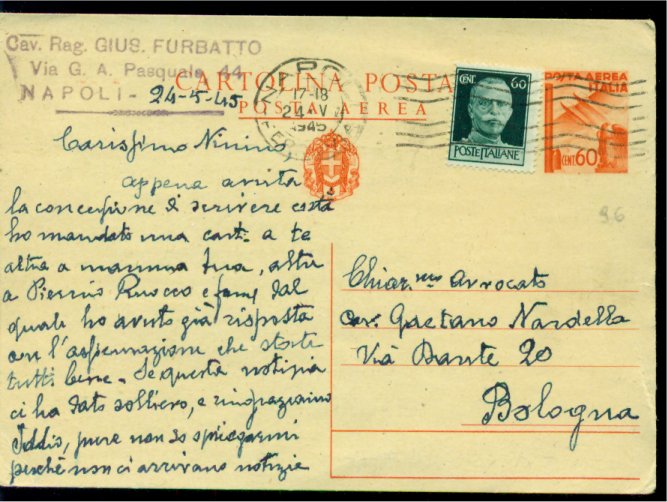 Cav. Rag. GIUS. FURBATTO
Via G. A. Pasquale 44
NAPOLI - 24-5-45
CARTOLINA POSTA
POSTA AEREA
NAPO
17-18
24 V
1945
CENT. 60
POSTE ITALIANE
POSTA AEREA
ITALIA
CENT 60
96
Carissimo Ninino
appena avuta
la concessione di scrivere costà
ho mandato una cart. a te
altra a mamma tua, altra
a Pierino Ruocco e fam, dal
quale ho avuto già risposta
con l'assicurazione che state
tutti bene - Se questa notizia
ci ha dato sollievo, e ringraziamo
Iddio, pure non so spiegarmi
perché non ci arrivano notizie
Chiar.mo Avvocato
Gaetano Nardella
Via Dante 20
Bologna